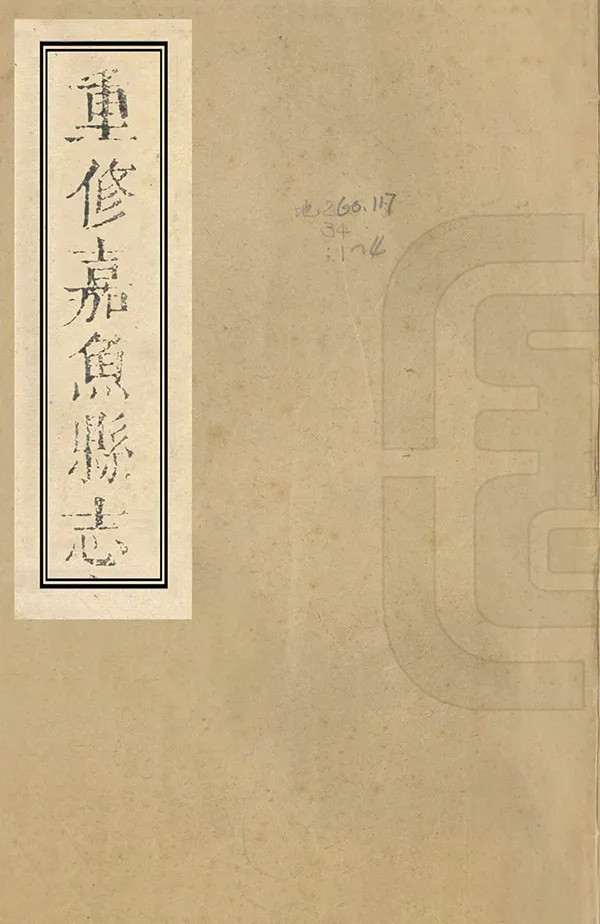 重修嘉魚縣志
地260.117
34
:1~4